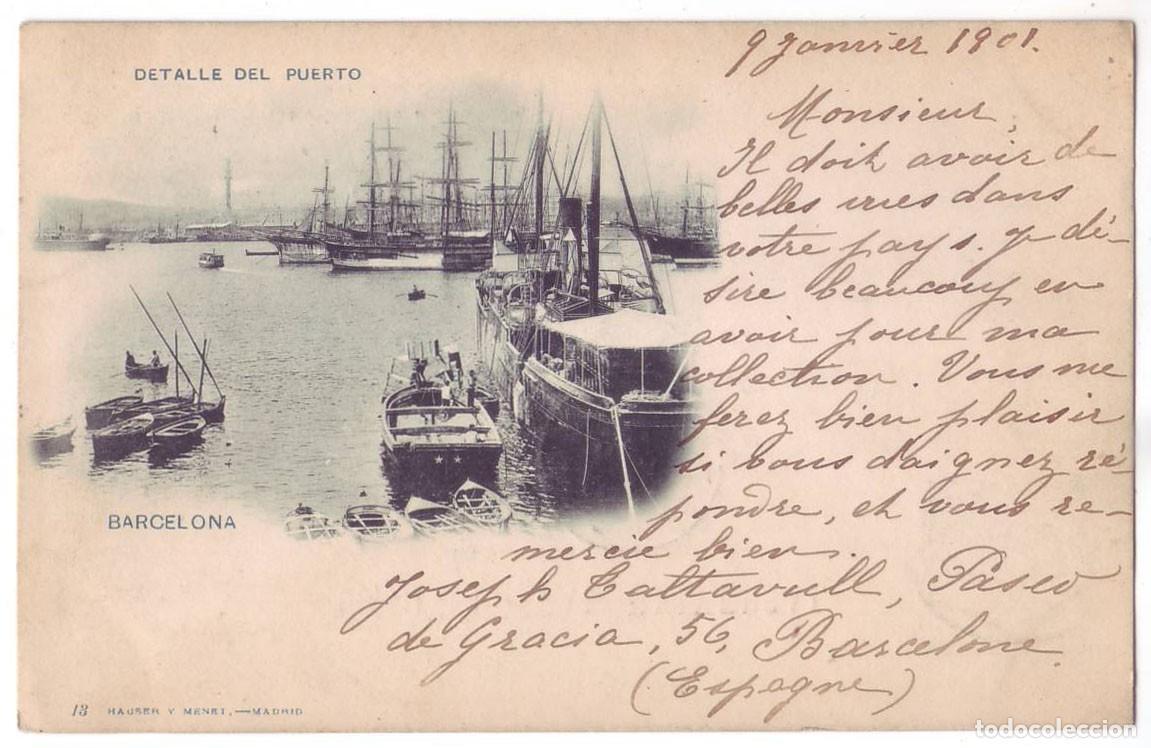 DETALLE DEL PUERTO
9 Janvier 1901.
Monsieur,
Il doit avoir de
belles vues dans
votre pays. J dé-
sire beaucoup en
avoir pour ma
collection. Vous me
ferez bien plaisir
si vous daignez ré-
pondre, et vous re-
mercie bien.
Joseph Taltavull, Paseo
de Gracia, 56, Barcelone
(Espagne)
BARCELONA
13 HAUSER Y MENET,—MADRID
todocoleccion